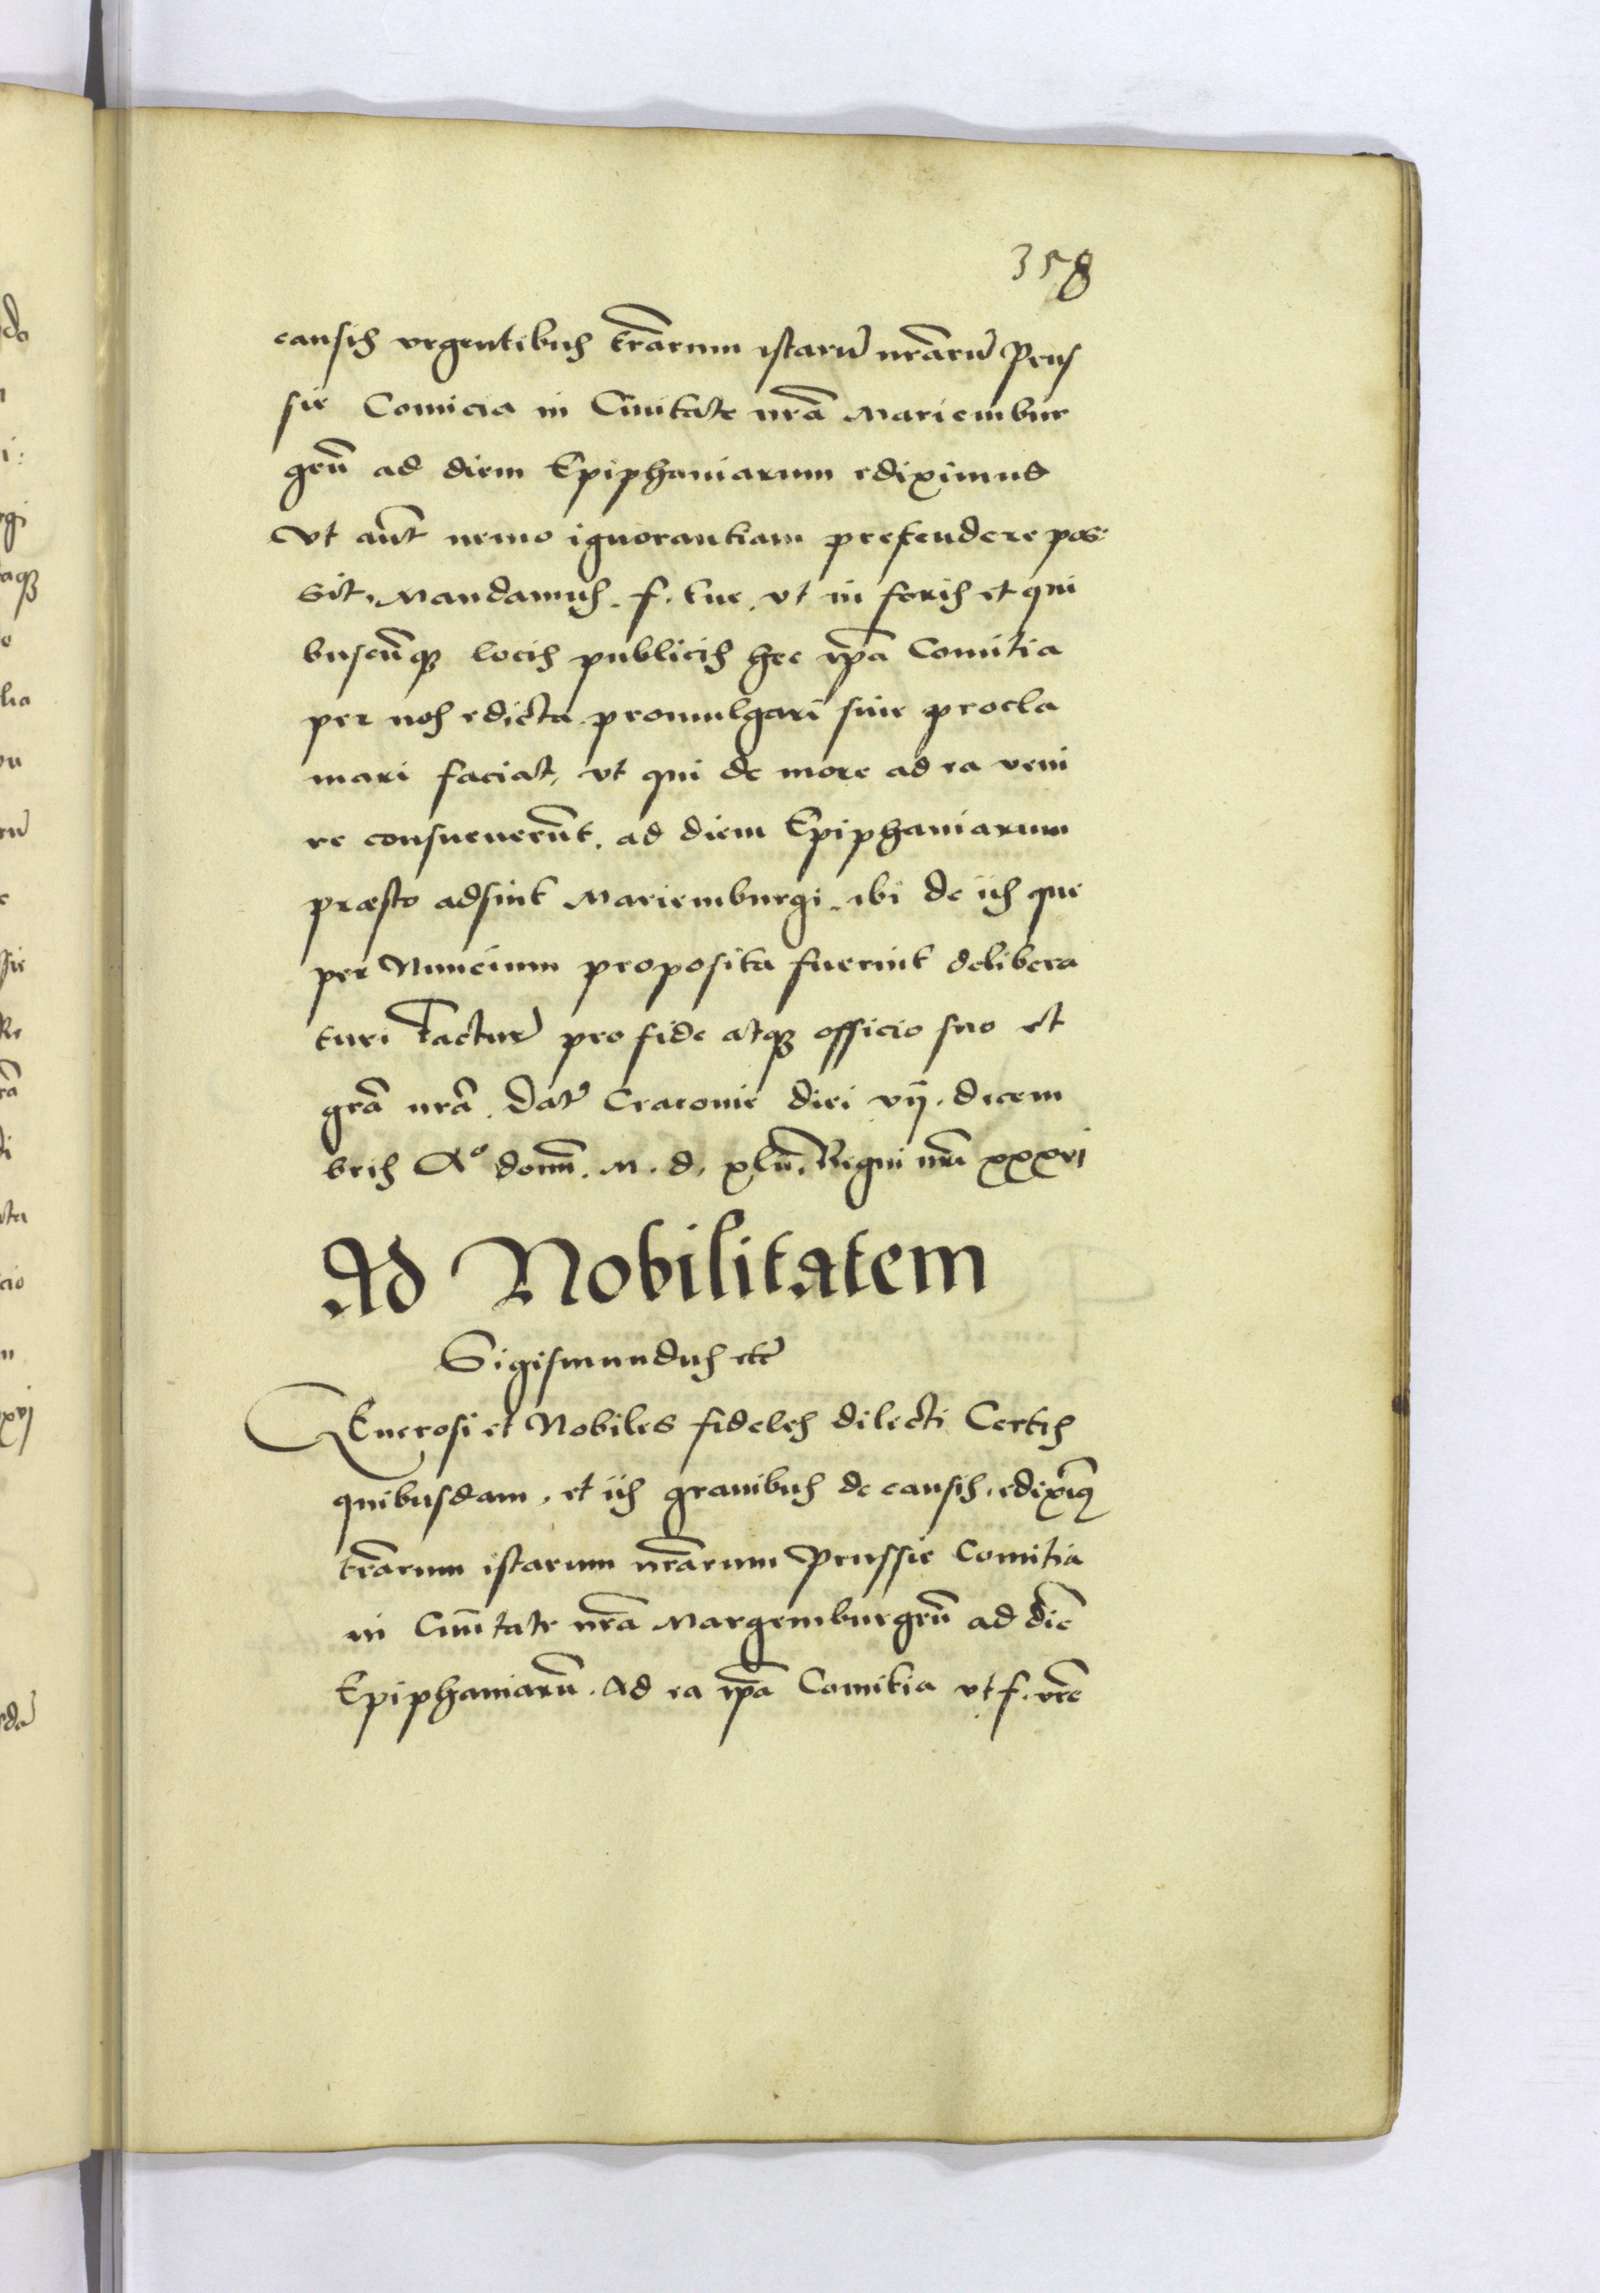 358
causis vrgentibus trãrum istarũ nrãrũ Prus
sie Comicia in Ciuitate nrã Mariembur
geñ ad diem Epiphaniarum ediximus
Vt aũt nemo ignorantiam pretendere pos
sit, Mandamus. f. tue, vt in foris et qui
buscũqꝫ locis publicis hec ip̃a Comitia
per nos edicta promulgari siue procla
mari faciat, vt qui de more ad ea veni
re consueuerũt, ad diem Epiphaniarum
præsto adsint Mariemburgi, ibi de iis que
per Nuncium proposita fuerint delibera
turi facturi pro fide atqꝫ officio suo et
grã nrã. Dat̃ Cracouie diei vij. decem
bris Aº domĩ. M. d. xlij. Regni nrĩ xxxvi
Ad Nobilitatem
Sigismundus etc̃
GEnerosi et Nobiles fideles dilecti Certis
quibusdam, et iis grauibus de causis, edixiꝰ
trãrum istarum nrãrum Prussie Comitia
in Ciuitate nrã Margemburgeñ ad diẽ
Epiphaniarũ. Ad ea ip̃a Comitia vt f. vrẽ